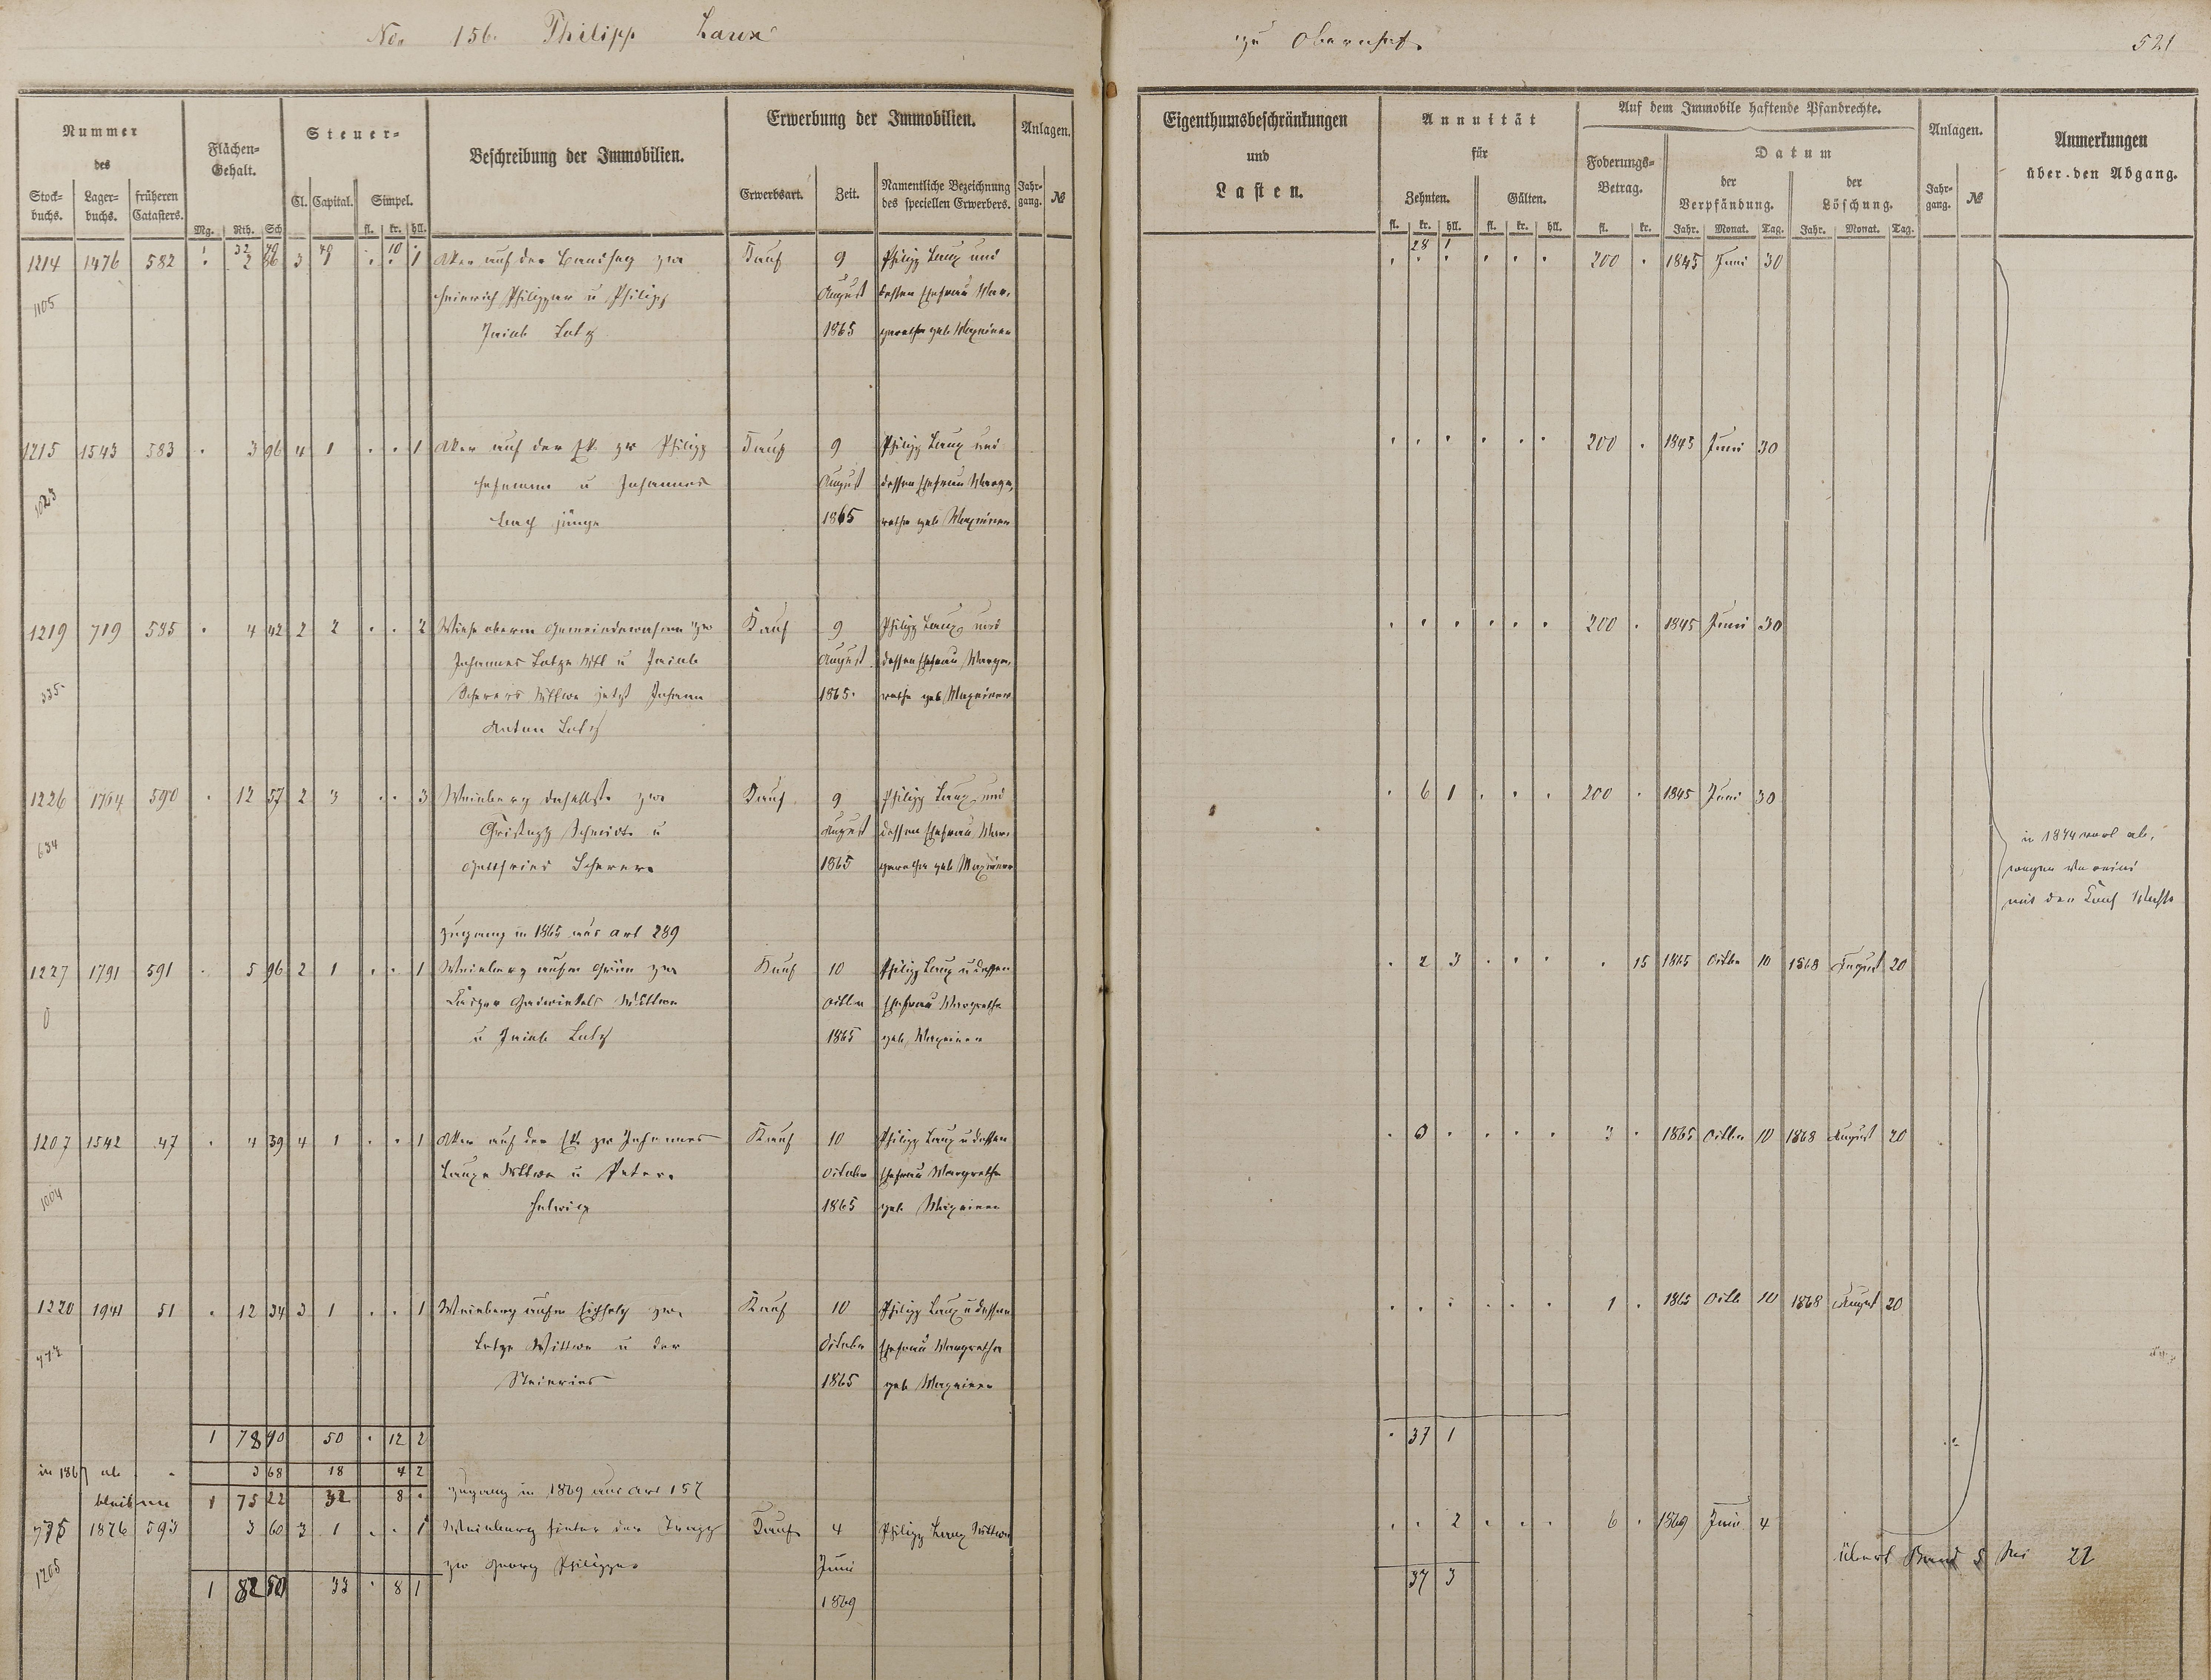 No. 156. Philipp Laux
zu Obernhof.
521
Nummer des
Stock-buchs. Lager-buchs. früheren Catasters.
Flächen-Gehalt.
Mg. Rth. Sch
Steuer-
Cl. Capital. Simpel.
fl. kr. hll.
Beschreibung der Immobilien.
Erwerbung der Immobilien.
Erwerbsart. Zeit. Namentliche Bezeichnung des speciellen Erwerbers.
Anlagen.
Jahr-gang. №
Eigenthumsbeschränkungen
und
Lasten.
Annuität
für
Zehnten. Gülten.
fl. kr. hll. fl. kr. hll.
Auf dem Immobile haftende Pfandrechte.
Foderungs-Betrag.
fl. kr.
Datum
der Verpfändung. der Löschung.
Jahr. Monat. Tag. Jahr. Monat. Tag.
Anlagen.
Jahr-gang. №
Anmerkungen
über den Abgang.
1 32 49 10 28 1
1214 1476 582 . 2 86 3 1 . . 1 Acker auf der zw Kauf 9 Philipp Laux und . . . . . . 200 . 1845 Juni 30
1105 Heinrich Philippar u Philipp August dessen Ehefrau Mar-
Jacob Lotz 1865 garethe geb Maxeiner
1215 1543 583 . 3 96 4 1 . . 1 Acker auf der zw Philipp Kauf 9 Philipp Laux und . . . . . . 200 . 1845 Juni 30
1023 Hofmann u Johannes August dessen Ehefrau Marga-
Bach jünger 1865 rethe geb Maxeiner
1219 719 585 . 4 42 2 2 . . 2 Wiese oberm zw Kauf 9 Philipp Laux und . . . . . . 200 . 1845 Juni 30
335 Johannes Lotze Wtb u Jacob August dessen Ehefrau Marga-
Scherers Wittwe jetzt Johann 1865. rethe geb Maxeiner
Anton Lotz
1226 1764 590 . 12 57 2 3 . . 3 Weinberg daselbst zw Kauf 9 Philipp Laux und . 6 1 . . . 200 . 1845 Juni 30
634 Christoph Schmidt u August dessen Ehefrau Mar-
Gottfried Scherer. 1865 garethe geb Maxeiner
in 1874 ab,
wegen
mit der
Zugang in 1865 aus Art 289
1227 1791 591 . 5 96 2 1 . . 1 Weinberg aufm Grün zw Kauf 10 Philipp Laux u dessen . 2 3 . . . . 15 1865 Octbr 10 1868 August 20
0 Wittwe Octbr Ehefrau Margrethe
u Jacob Lotz 1865 geb. Maxeiner
1207 1542 47 . 4 39 4 1 . . 1 Acker auf der zw Johannes Kauf 10 Philipp Laux u dessen . 0 . . . . 3 . 1865 Octbr 10 1868 August 20
1004 Lauxe Wittwe u Peter. October Ehefrau Margrethe
Helwig 1865 geb Maxeiner
1220 1941 51 . 12 34 3 1 . . 1 Weinberg aufm Eichholz zw. Kauf 10 Philipp Laux u dessen . . . . . . 1 . 1865 Octb 10 1868 August 20
Lotze Wittwe u der October Ehefrau Margretha
1865 geb Maxeiner
1 78 90 50 . 12 2 . 37 1
in 1867 ab . 3 68 18 4 2
bleiben 1 75 22 32 8 . Zugang in 1869 aus Art 157
775 1876 593 3 60 3 1 . . 1 Weinberg hinter der zw Georg Philippar Kauf 4 Philipp Laux Wittwe . . 2 . . . 6 . 1869 Juni 4
1205 Juni
1 82 50 33 . 8 1 1869 37 3
übert Band 5 22